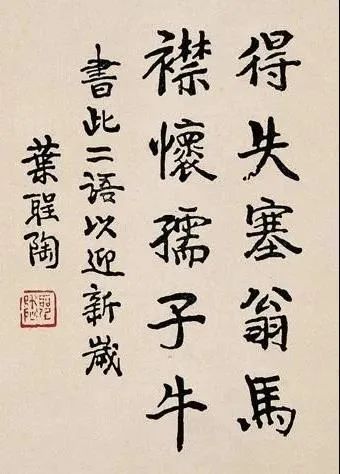 得失塞翁馬
襟懷孺子牛
書此二語以迎新嵗
葉聖陶